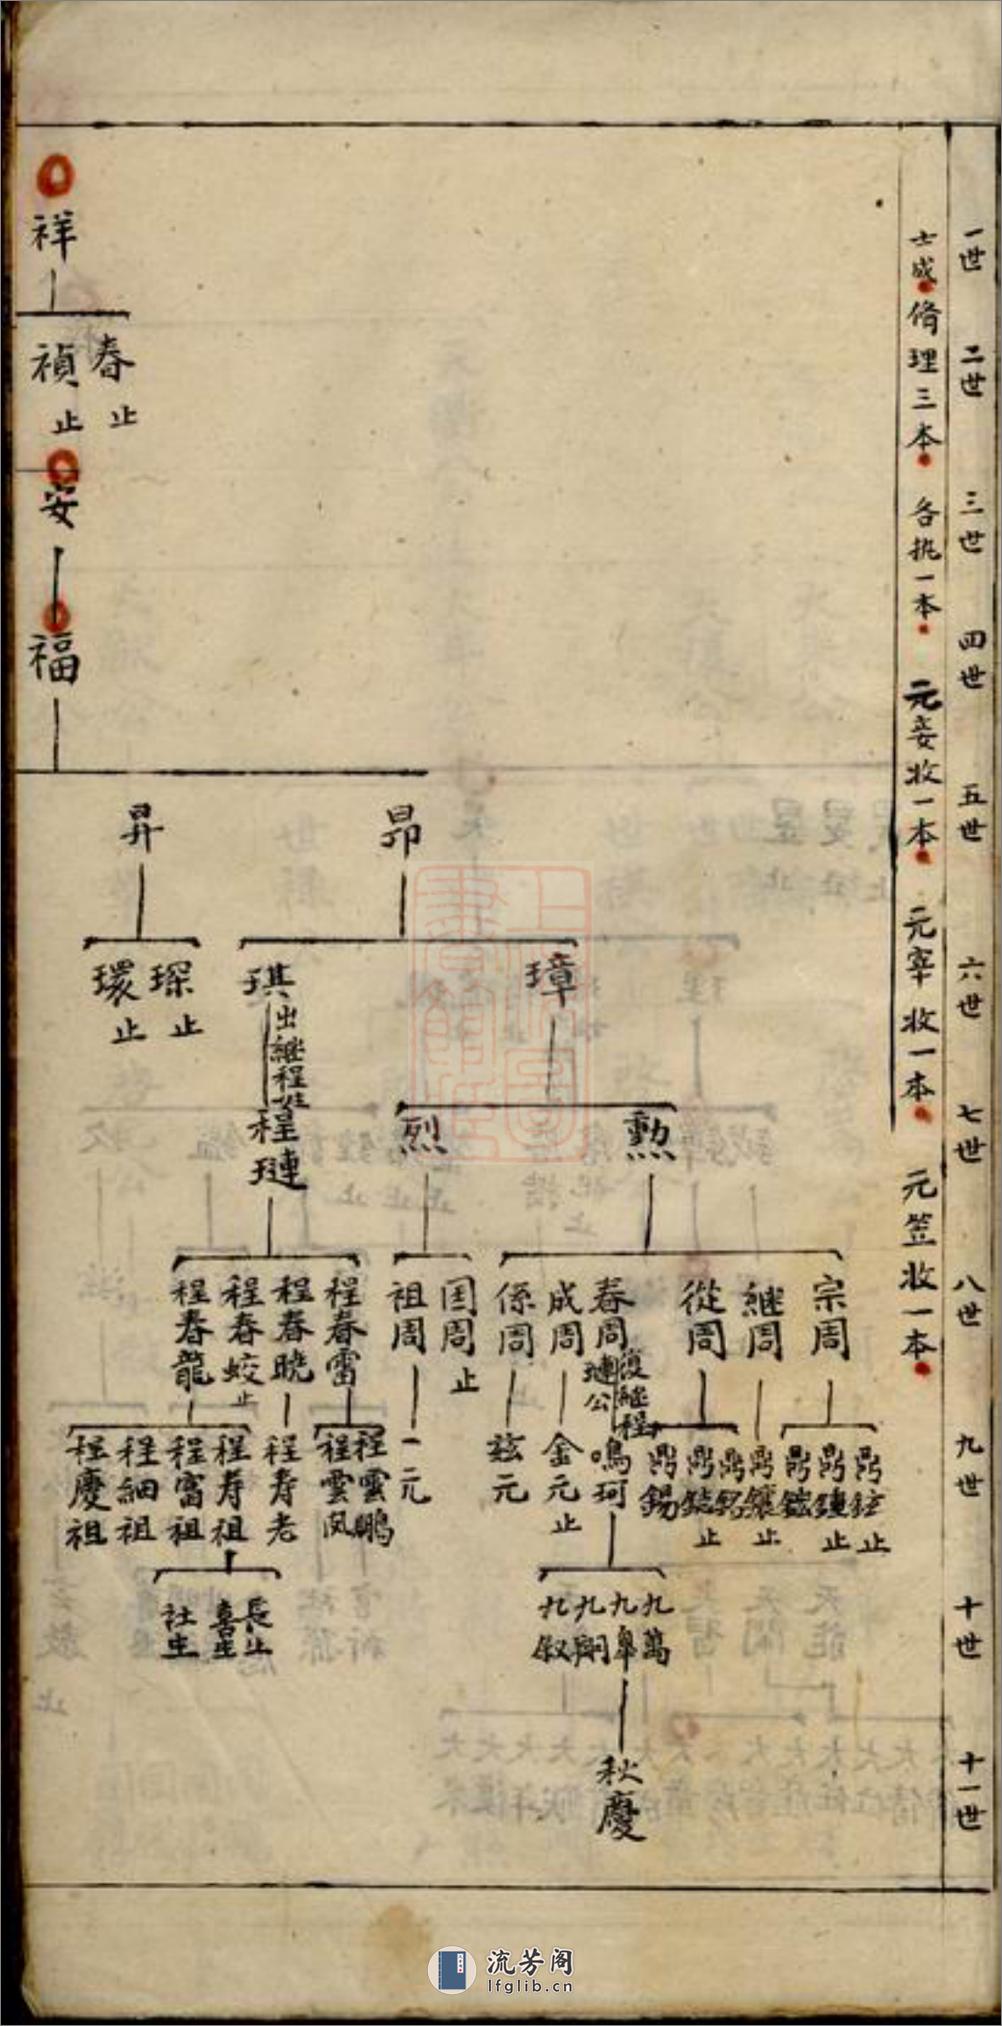 一世
二世
三世
四世
五世
六世
七世
八世
九世
十世
十一世
士成脩理三本 各执一本 元妾收一本 元宰收一本 元笠收一本
祥
春止
禎止
安
福
昂
昇
璋
琪
出繼程姓
琛止
環止
勲
烈
程璉
宗周
繼周
從周
春周
復繼程璉公
成周
係周
国周止
祖周
程春雷
程春曉
程春蛟止
程春龍
鼎鉉止
鼎鏈止
鼎鋐
鼎鑲止
鼎銘
鼎
鼎錫
止
鳴珂
金元止
玆元
一元
程雲鵬
程雲凤
程寿老
程寿祖
程富祖
程細祖
程慶祖
九萬
九皐
九嗣
九叙
長止
喜生
社生
秋慶
上海圖書館藏
流芳阁
lfglib.cn